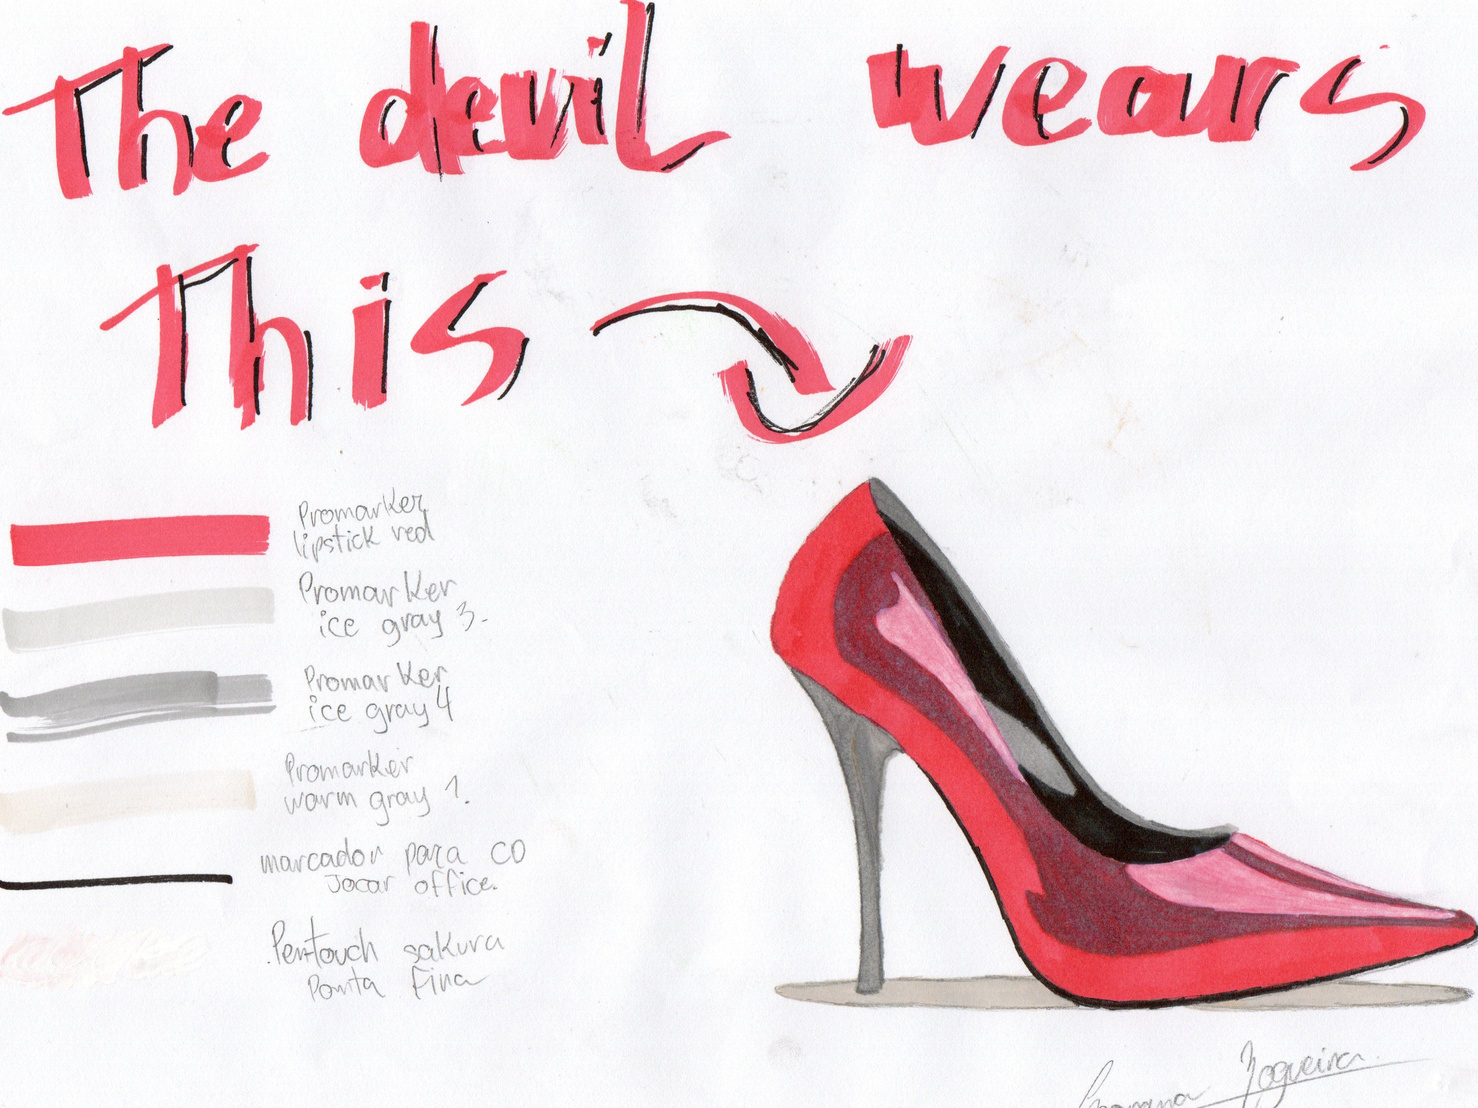 The devil wears
This
Promarker
lipstick red
Promarker
ice gray 3.
Promarker
ice gray 4
Promarker
warm gray 1.
marcador para CD
Jocar office.
Pentouch sakura
Ponta fina
Nogueira